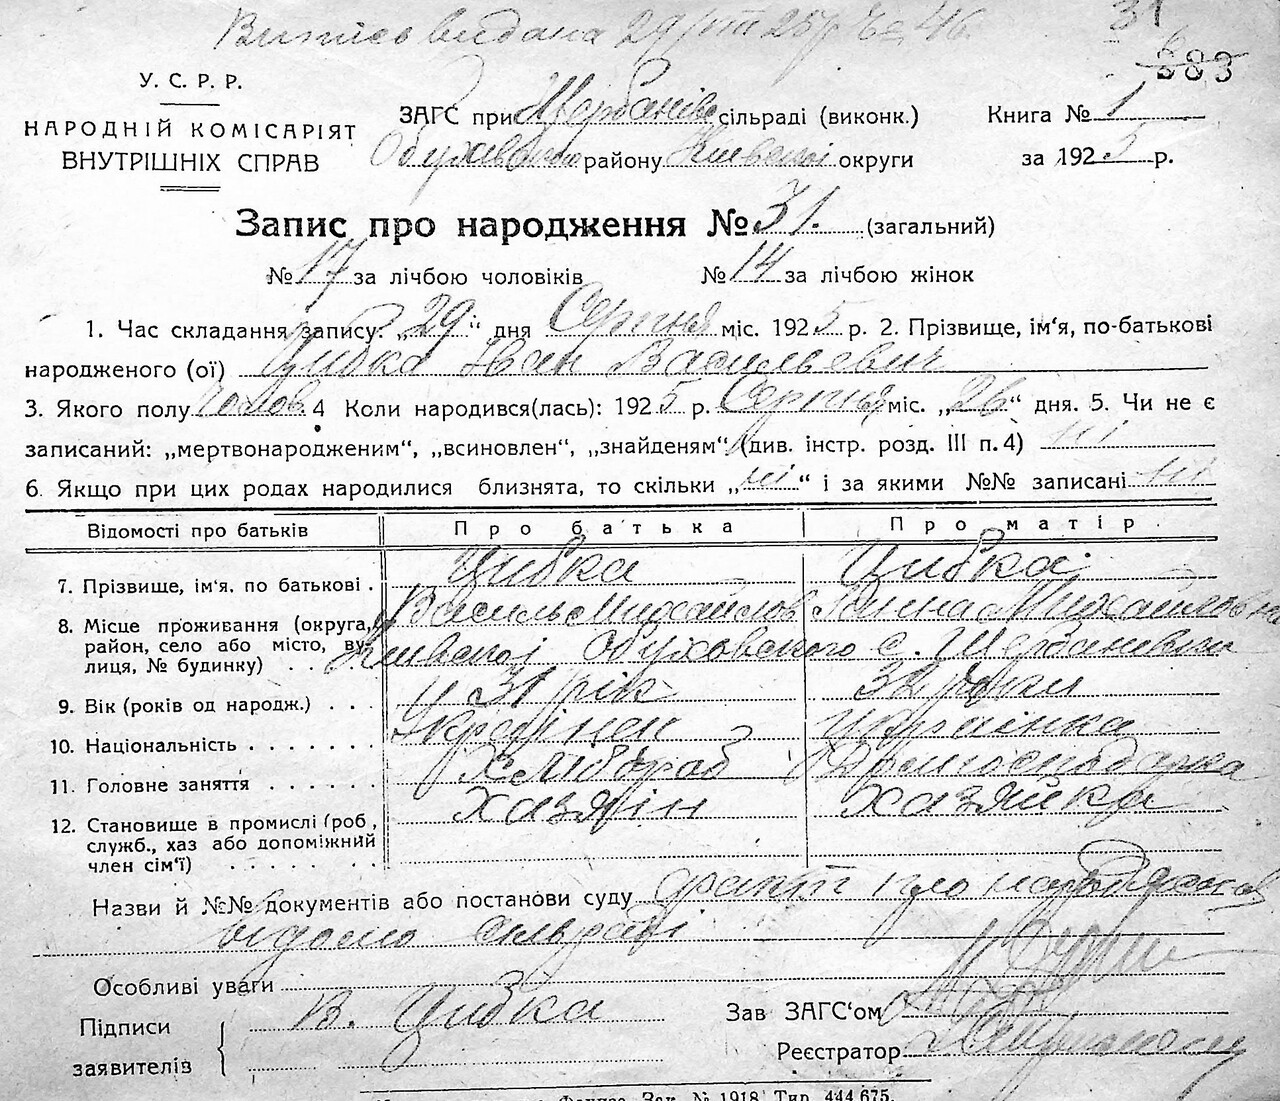 Випись видана 29/VIII 25р. № 46.
31
383
У. С. Р. Р.
НАРОДНІЙ КОМІСАРІЯТ
ВНУТРІШНІХ СПРАВ
ЗАГС при Щербанів сільраді (виконк.)
Обухівського району Київської округи
Книга № 1
за 1925 р.
Запис про народження № 31. (загальний)
№ 17 за лічбою чоловіків № 14 за лічбою жінок
1. Час складання запису: „29“ дня Серпня міс. 1925 р. 2. Прізвище, ім'я, по-батькові
народженого (ої) Цибка Іван Васильевич
3. Якого полу Чолов. 4 Коли народився(лась): 1925 р. Серпня міс. „26“ дня. 5. Чи не є
записаний: „мертвонародженим“, „всиновлен“, „знайденям“ (див. інстр. розд. III п. 4) ні
6. Якщо при цих родах народилися близнята, то скільки „ні“ і за якими №№ записані ні
Відомості про батьків Про батька Про матір.
7. Прізвище, ім'я. по батькові . Цибка Цибка
Василь Михайлов Михайловна
8. Місце проживання (округа,
район, село або місто, ву-
лиця, № будинку) . . Київської Обуховського с. Щербанівки
9. Вік (років од народж.) . . . 31 рік 32 роки
10. Національність . . . . . . . Українец Українка
11. Головне заняття . . . . . . Хлібороб Домогосподарка
12. Становище в промислі (роб., Хазяїн Хазяйка
служб., хаз або допоміжний
член сім'ї) . . . . .
Назви й №№ документів або постанови суду факт про народження
відомо сільраді
Особливі уваги
Підписи
заявителів
В. Цибка
Зав ЗАГС'ом
Реєстратор
Зак. № 1918 Тир. 444.675.